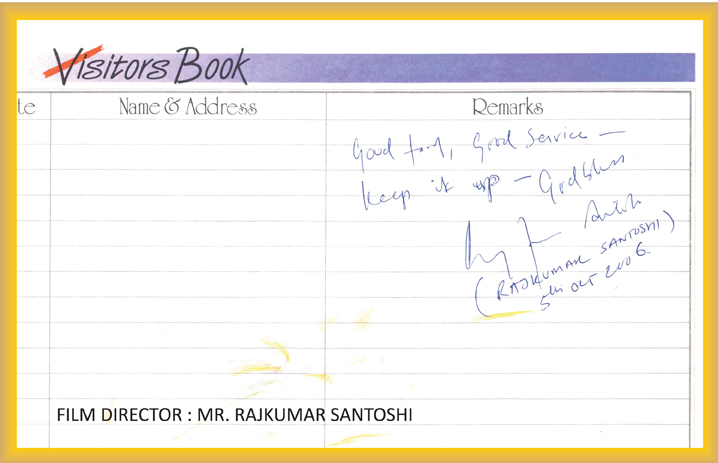 Visitors Book
te Name & Address Remarks
Good food, Good Service –
keep it up – God bless
(RAJKUMAR SANTOSHI)
5th OCT 2006
FILM DIRECTOR : MR. RAJKUMAR SANTOSHI